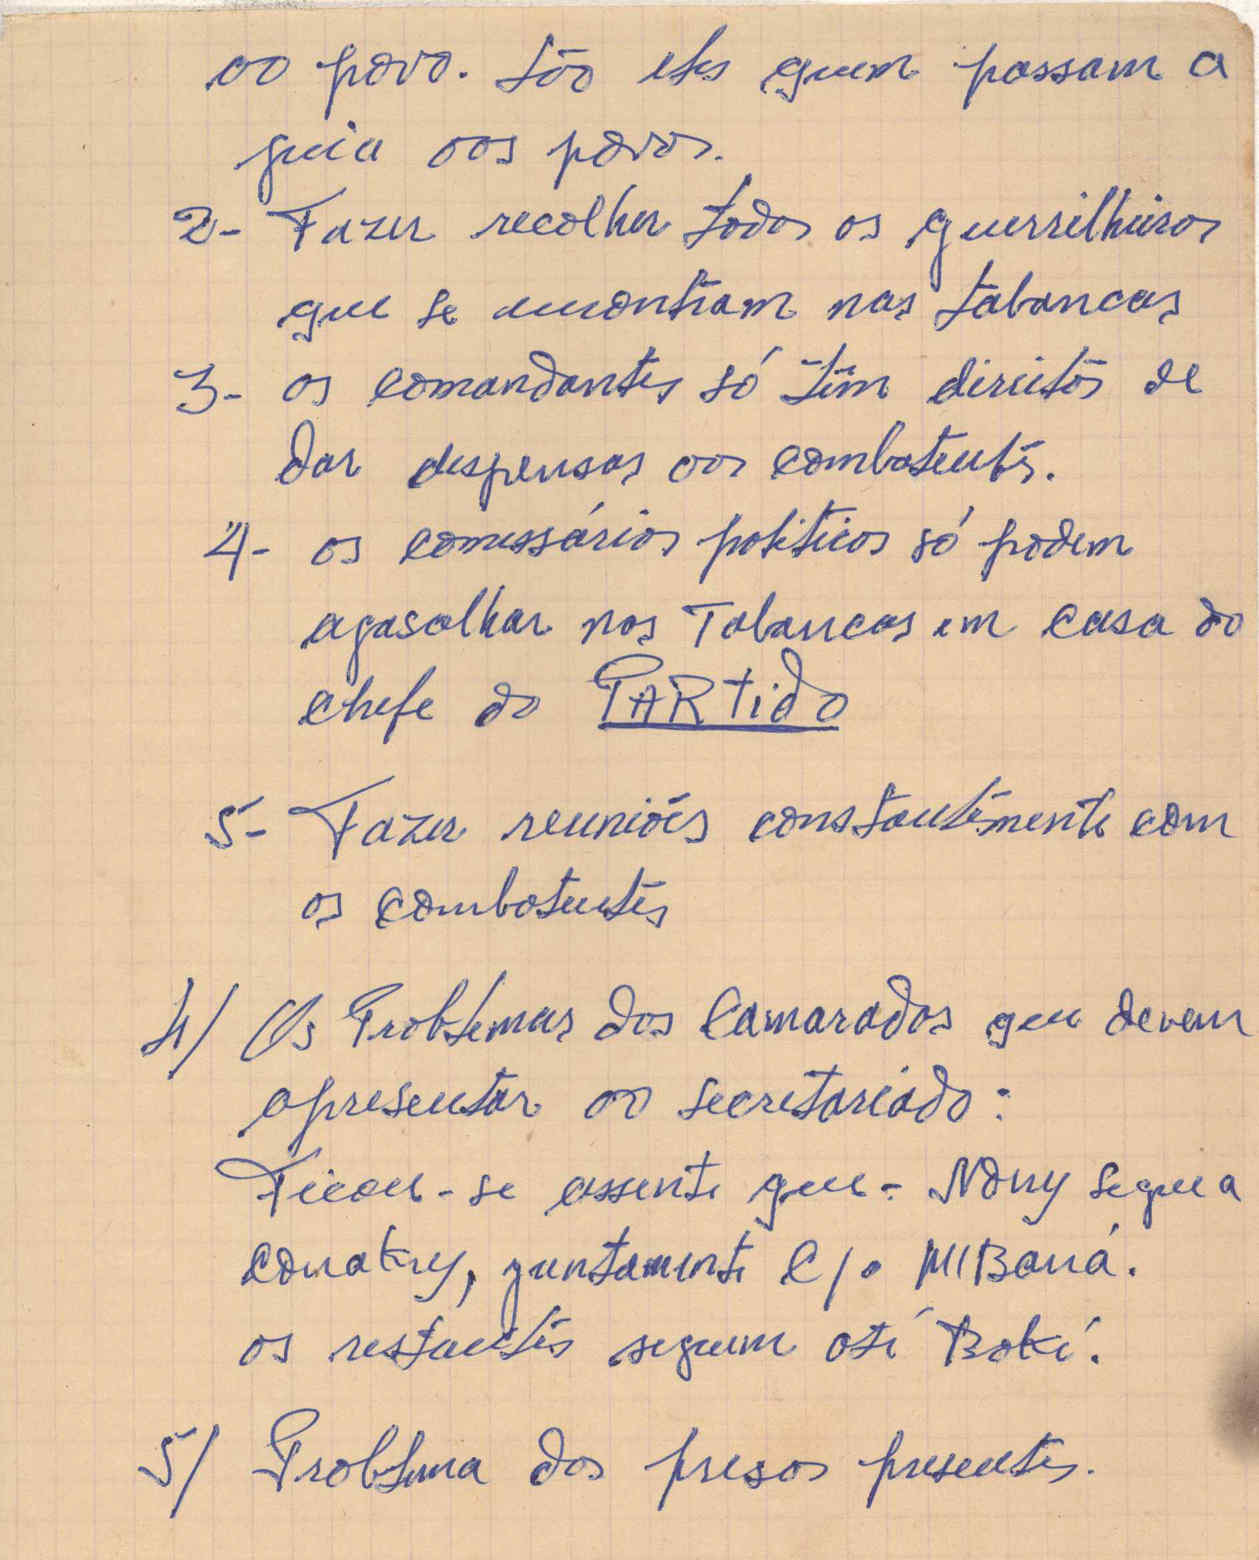 ao povo. São eles quem passam a
guia aos povos.
2- Fazer recolher todos os guerrilheiros
que se encontram nas tabancas
3- os comandantes só têm direitos de
dar dispensas aos combatentes.
4- os comissários politicos só podem
agasalhar nas Tabancas em casa do
chefe do PARtido
5- Fazer reuniões constantemente com
os combatentes
4/ Os Problemas dos Camaradas que devem
apresentar ao secretariado:
Ficou-se assente que - Nony segue a
conakry, juntamente C/o M/Baná.
os restantes seguem até Boké.
5/ Problema dos presos presentes.